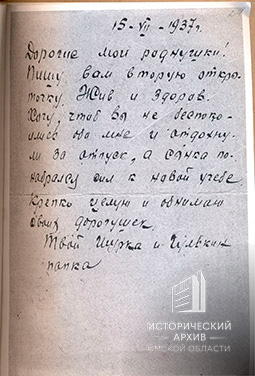 15-VII-1937г.
Дорогие мои роднушки!
Пишу вам вторую откры
точку. Жив и здоров.
Хочу, чтоб вы не беспоко-
ились обо мне и отдохну
ли за отпуск, а санка по
набрался сил к новой учебе
Крепко целую и обнимаю
своих дорогушек
Твой Шурка и
папка
ИСТОРИЧЕСКИЙ
АРХИВ
ОМСКОЙ ОБЛАСТИ